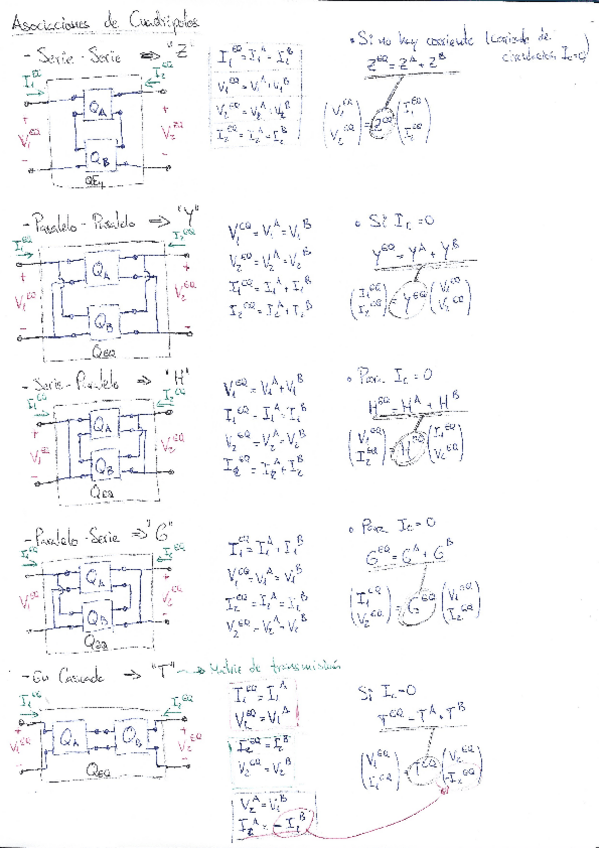 Asociaciones de Cuadripolos
- Serie - Serie ⇒ "Z"
I₁^EQ I₂^EQ
V₁^EQ Q_A V₂^EQ
Q_B
Q_EQ
I₁^EQ = I₁^A = I₁^B
V₁^EQ = V₁^A + V₁^B
V₂^EQ = V₂^A + V₂^B
I₂^EQ = I₂^A = I₂^B
• Si no hay corriente (corriente de circulación I_c = 0)
Z^EQ = Z^A + Z^B
(V₁^EQ V₂^EQ) = Z^EQ (I₁^EQ I₂^EQ)
- Paralelo - Paralelo ⇒ "Y"
I₁^EQ I₂^EQ
V₁^EQ Q_A V₂^EQ
Q_B
Q_EQ
V₁^EQ = V₁^A = V₁^B
V₂^EQ = V₂^A = V₂^B
I₁^EQ = I₁^A + I₁^B
I₂^EQ = I₂^A + I₂^B
• Si I_c = 0
Y^EQ = Y^A + Y^B
(I₁^EQ I₂^EQ) = Y^EQ (V₁^EQ V₂^EQ)
- Serie - Paralelo ⇒ "H"
I₁^EQ I₂^EQ
V₁^EQ Q_A V₂^EQ
Q_B
Q_EQ
V₁^EQ = V₁^A + V₁^B
I₁^EQ = I₁^A = I₁^B
V₂^EQ = V₂^A = V₂^B
I₂^EQ = I₂^A + I₂^B
• Para I_c = 0
H^EQ = H^A + H^B
(V₁^EQ I₂^EQ) = H^EQ (I₁^EQ V₂^EQ)
- Paralelo - Serie ⇒ "G"
I₁^EQ I₂^EQ
V₁^EQ Q_A V₂^EQ
Q_B
Q_EQ
I₁^EQ = I₁^A + I₁^B
V₁^EQ = V₁^A = V₁^B
I₂^EQ = I₂^A = I₂^B
V₂^EQ = V₂^A + V₂^B
• Para I_c = 0
G^EQ = G^A + G^B
(I₁^EQ V₂^EQ) = G^EQ (V₁^EQ I₂^EQ)
- En Cascada → "T" → Matriz de transmisión
I₁^EQ I₂^EQ
V₁^EQ Q_A Q_B V₂^EQ
Q_EQ
I₁^EQ = I₁^A
V₁^EQ = V₁^A
I₂^EQ = I₂^B
V₂^EQ = V₂^B
V₂^A = V₁^B
I₂^A = - I₁^B
Si I_c = 0
T^EQ = T^A · T^B
(V₁^EQ I₁^EQ) = T^EQ (V₂^EQ -I₂^EQ)